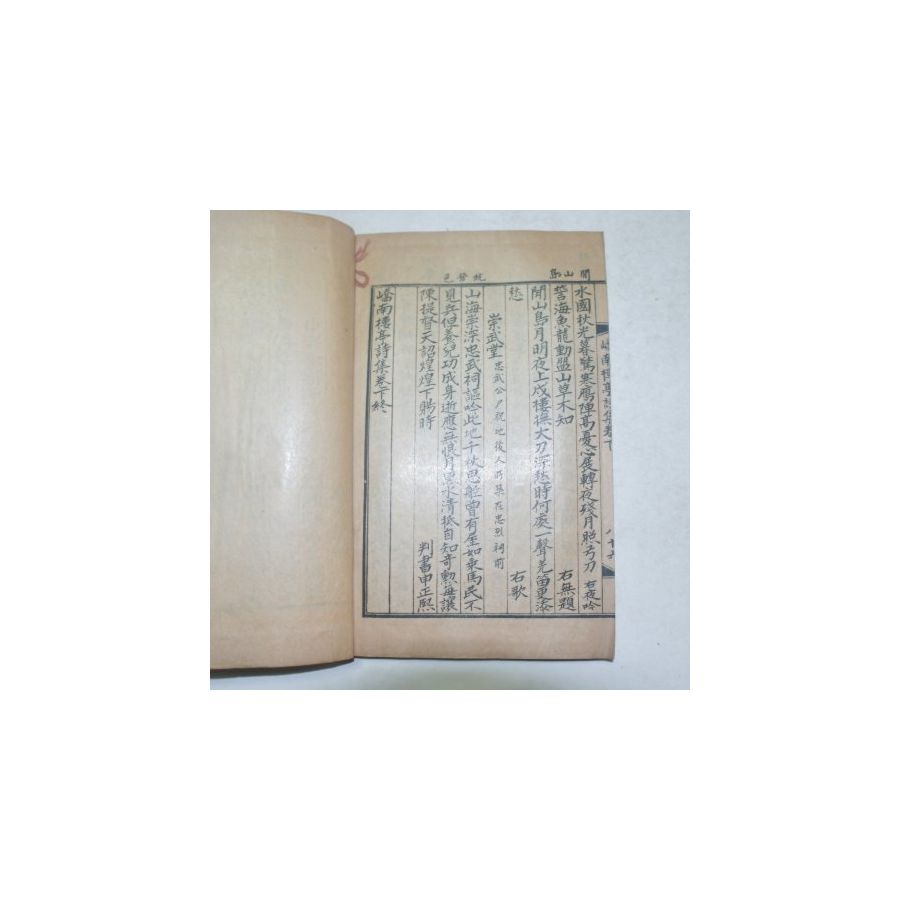 閒山島
水國秋光暮驚寒鴈陣高憂心展轉夜殘月照弓刀 右夜吟
誓海魚龍動盟山草木知 右無題
閒山島月明夜上戍樓撫大刀深愁時何處一聲羌笛更添
愁 右歌
崇武堂 忠武公尸祝地後人所集在忠烈祠前
山海崇深忠武祠謳吟此地千秋思船曾有屋如乘馬民不
見兵但養兒功成身逝應無恨月黑水清秪自知奇勳每讓
陳提督天詔煌煌下賜時 判書申正熙
嶠南樓亭詩集卷下終
嶠南樓亭詩集卷下